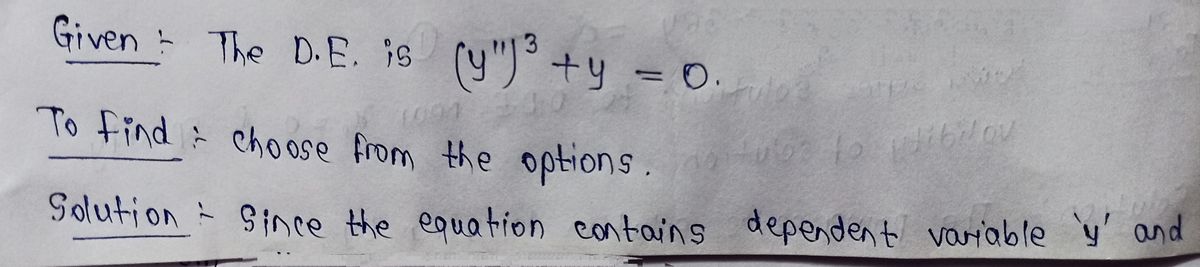 Given :- The D.E. is (y'')³ + y = 0.
To find :- choose from the options.
Solution :- Since the equation contains dependent variable 'y' and